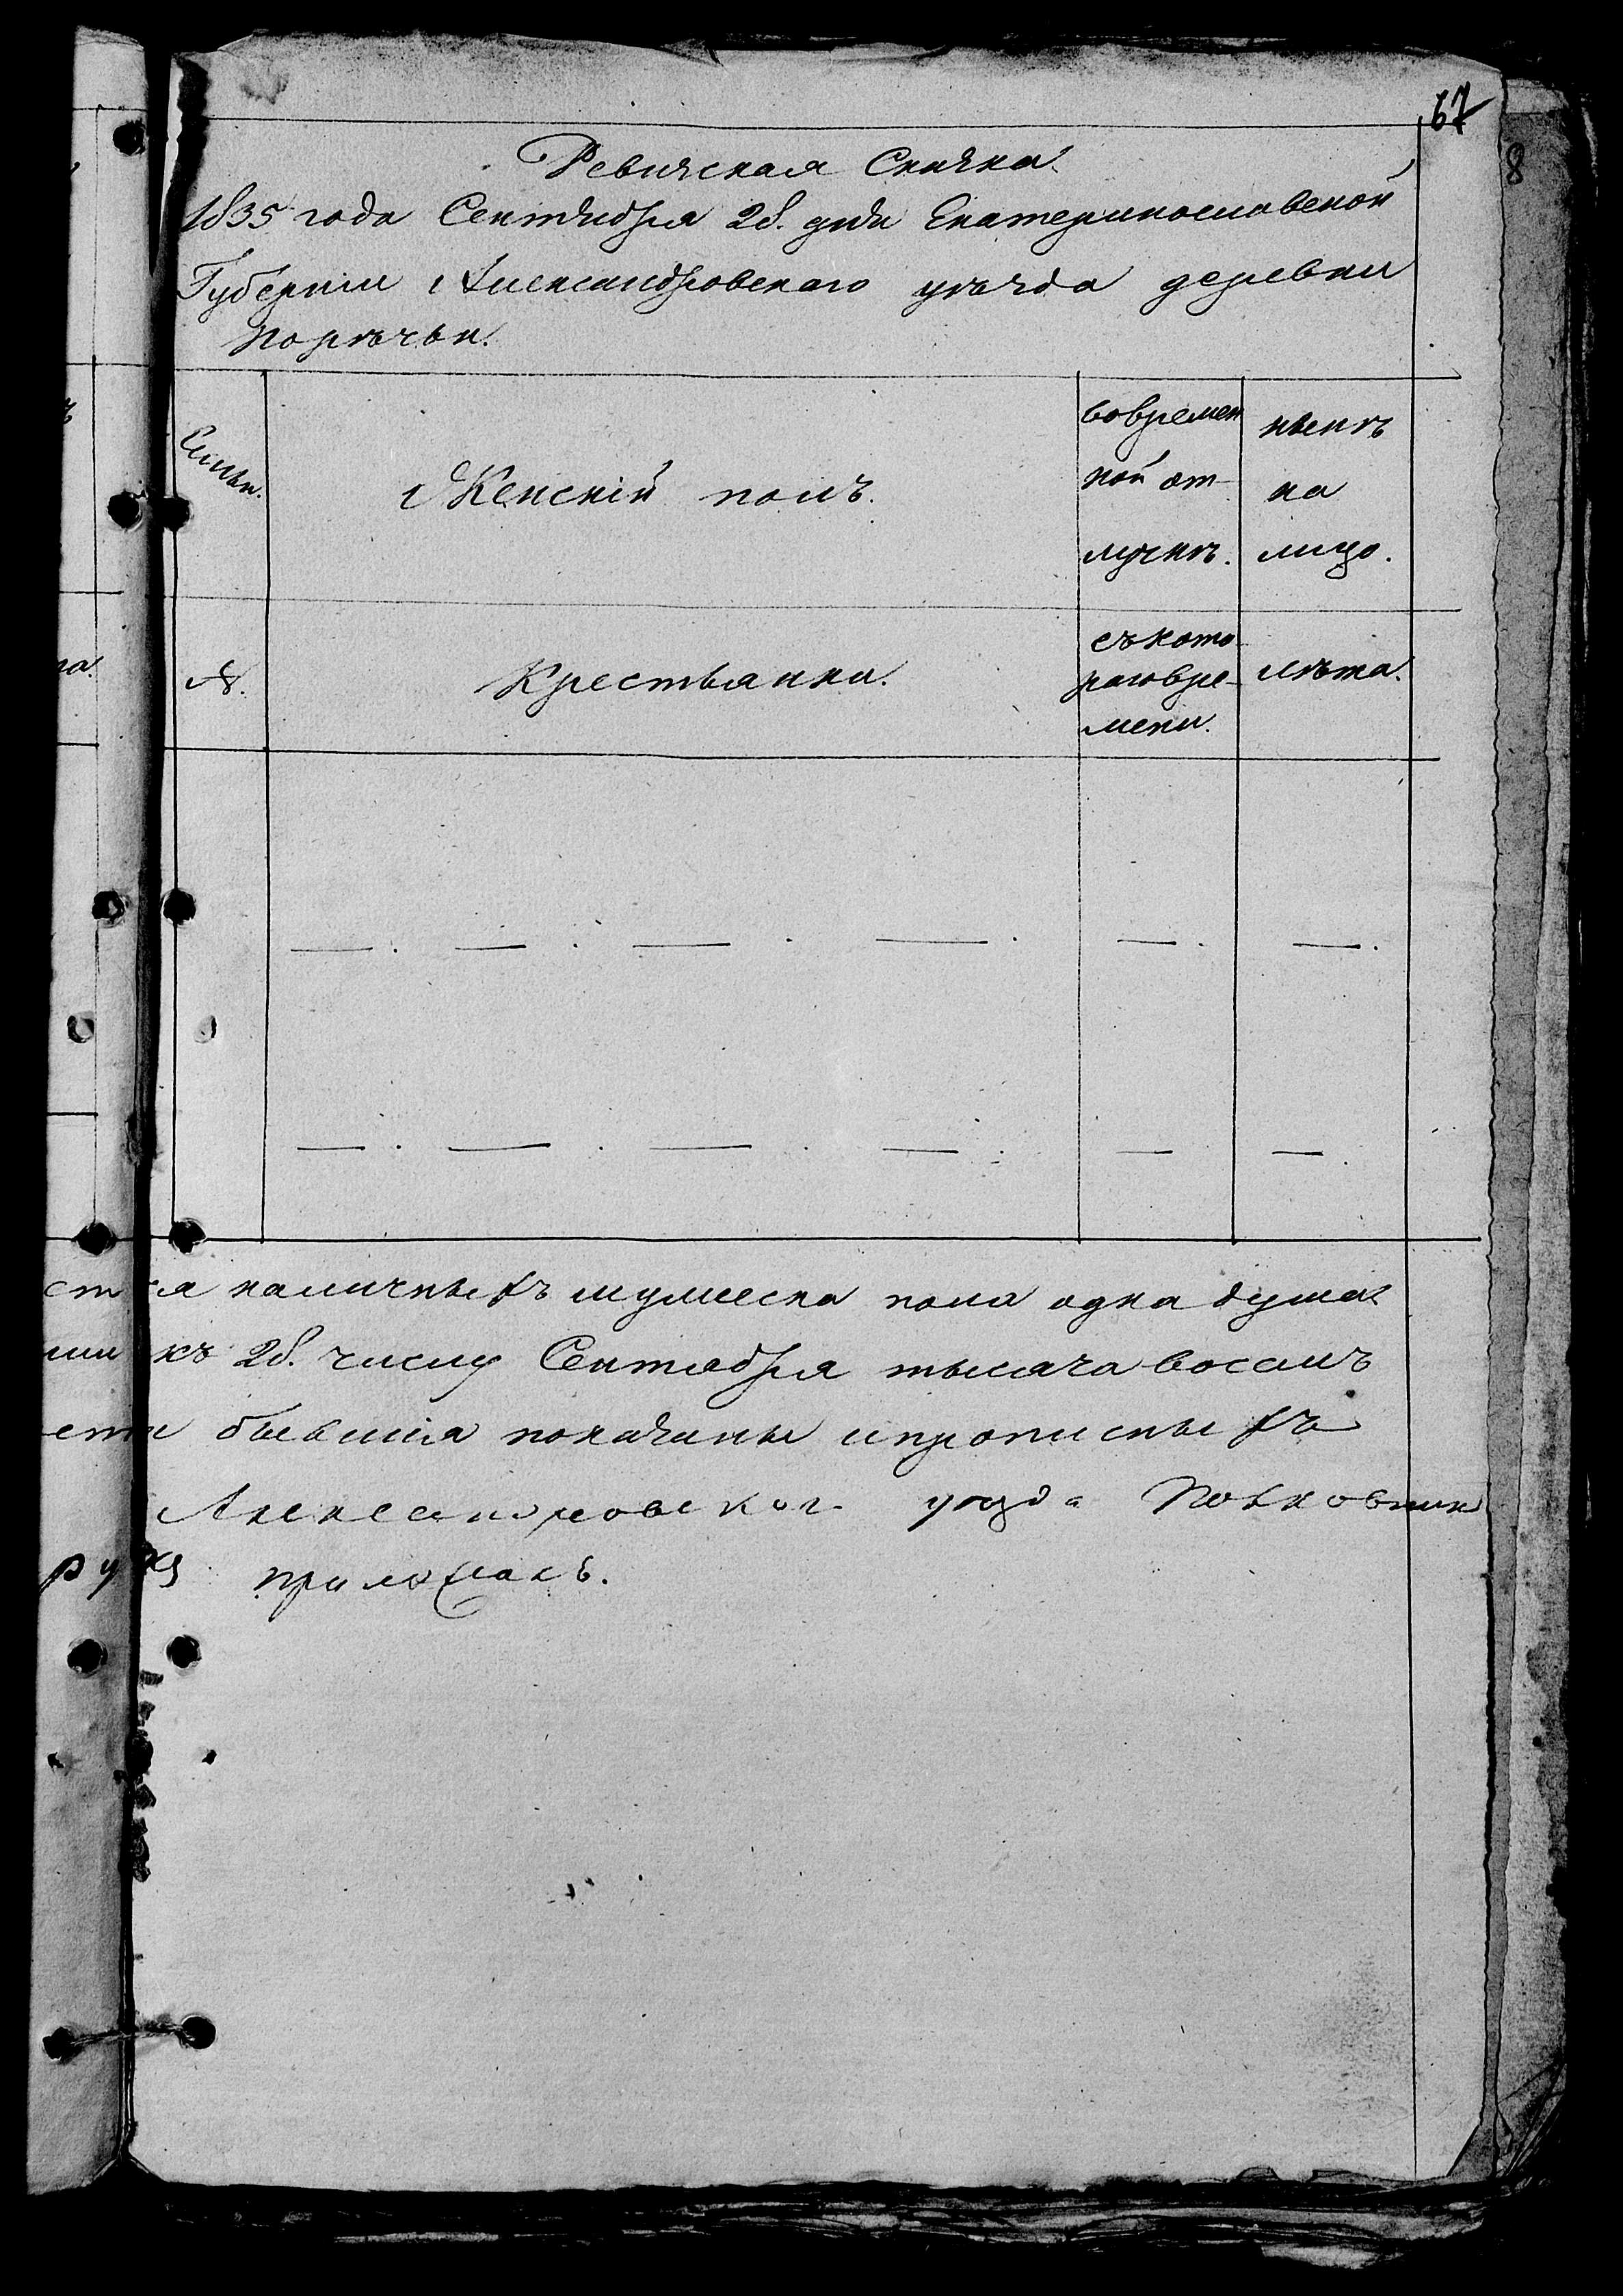 67
8
Ревизская Сказка
1835 года Сентября 28. дня Екатеринославской
Губернии Александровскаго уѣзда деревни
Порѣчьи.
Семьи.
Женскій полъ.
вовремен
ной от-
лучкѣ.
нынѣ
на
лицо.
№.
Крестьянки.
съ кото-
раговре-
мени.
лѣта.
ся наличныхъ мужеска пола одна душа
къ 28. числу Сентября тысяча восемь
бывшія показаны ипрописныхъ
Александровског уезда Полковник
руку приложилъ.